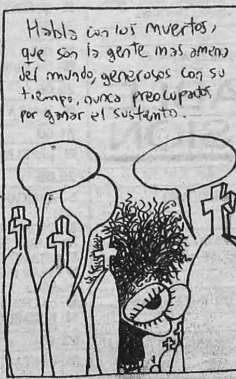 Habla con los muertos,
que son la gente mas amena
del mundo, generosos con su
tiempo, nunca preocupados
por ganar el sustento.